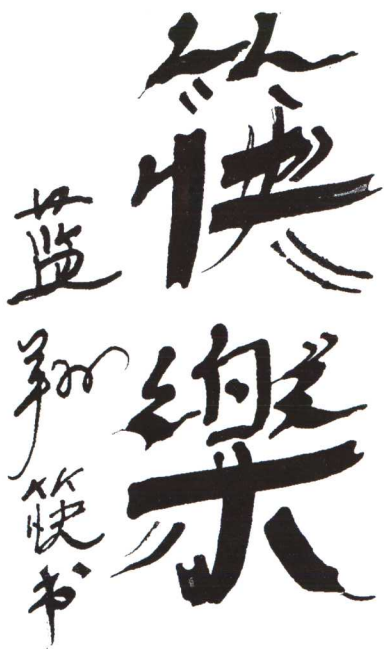 筷樂
蓝翔筷书